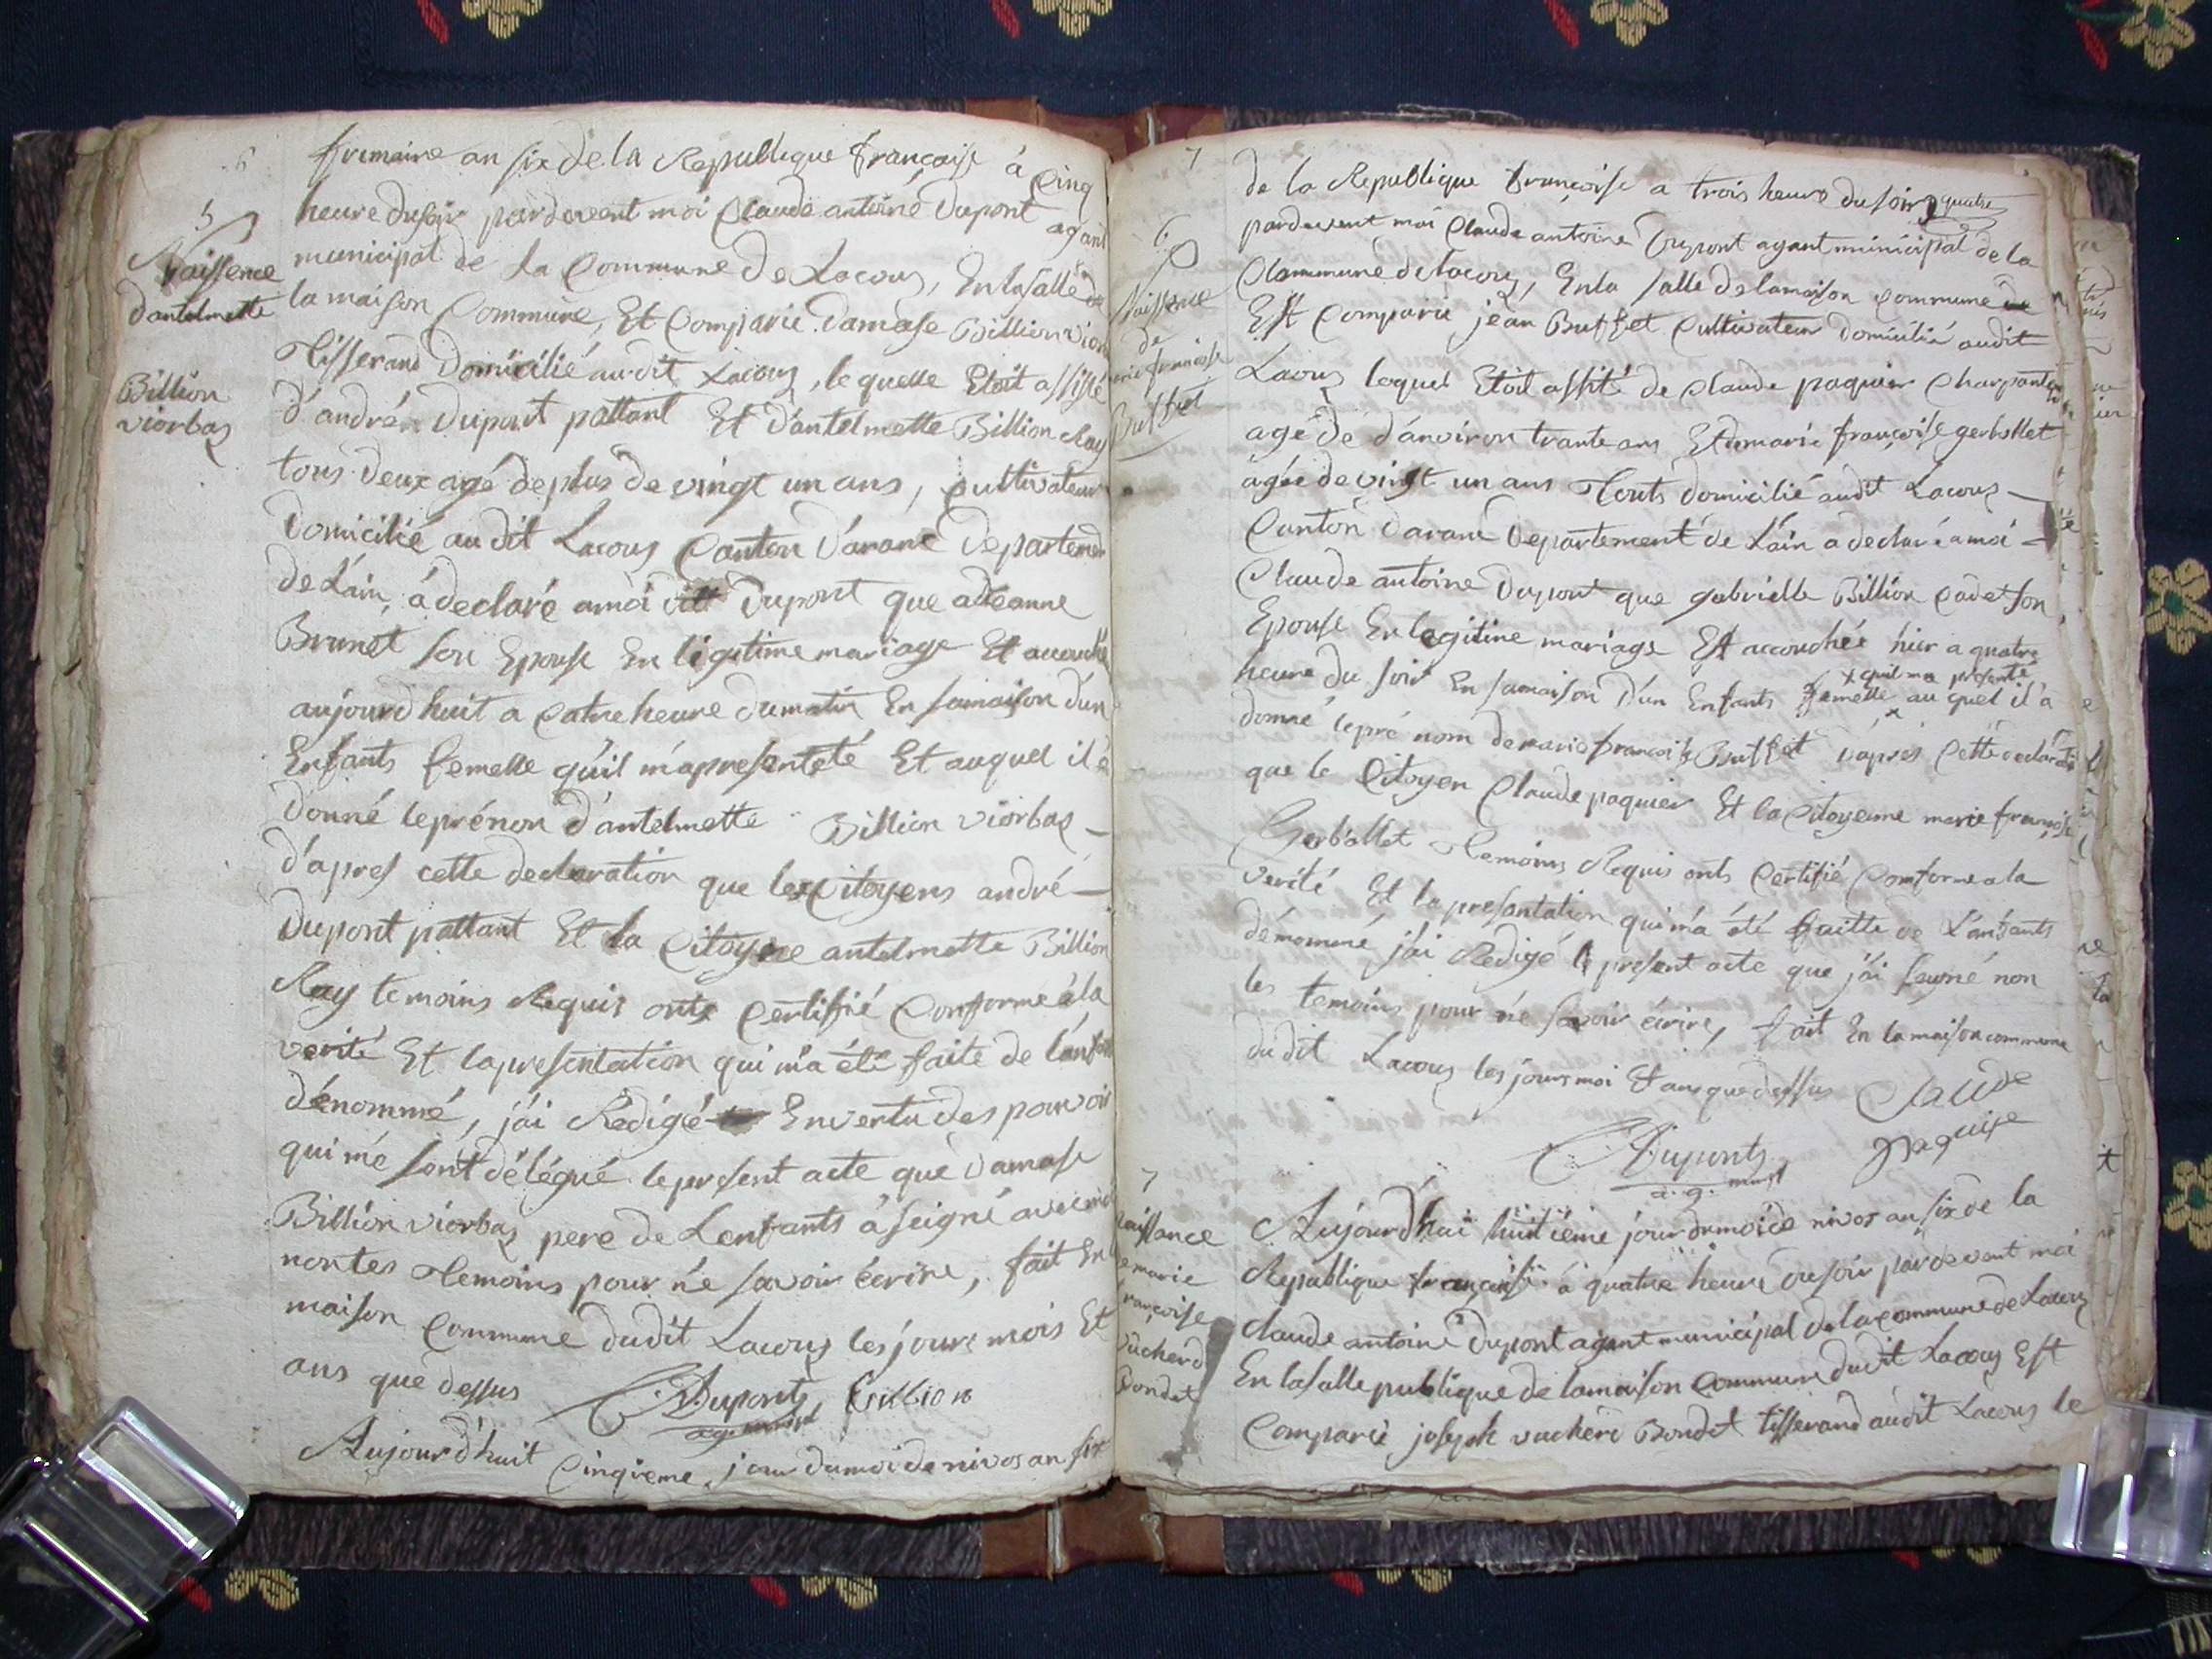 6
frimaire an six de la Republique francaise à Cinq
heure du soir pardevent moi Claude antoiné Dupont agant
municipal de la Commune de Lacoux, En la salle de
la maison Commune, Et Comparie damase Billion vior
Tisserand Domicilié audit Lacoux, le quelle Etoit assisté
d'andré Dupont pattant Et d'antelmette Billion Ray
tous deux agé de plus de vingt un ans, Cultivateur
Domicilié au dit Lacoux Canton d'arane Departemen
de L'ain, á declaré a moi dit Dupont que adeanne
Brunet son Epouse En ligitime mariage Et accouché
aujourd huit a Catre heure du matin En sa maison d'un
Enfants femelle qu'il m'a presenteté Et auquel il á
donné le prénon d'antelmette Billion viorbas
d'apres cette declaration que les Citoyens andré
Dupont pattant Et la Citoyene antelmette Billion
Ray temoins Requis onts Certiffié Conforme à la
verité Et la presentation qui m'a été faite de l'anfant
dénommé, j'ai Redigé En vertu des pouvoir
qui mé sont délégué le persent acte que Damase
Billion viorbas pere de L'enfants á seigné avec moi
non tes Temoins pour né savoir écrire, fait En
maison Commune dudit Lacoux les jours mois Et
ans que dessus
Dupont Billion
ag. munipl
Aujourd'huit Cinqieme jour du moi de nivos an six
5
Naissence
d'antelmette
Billion
viorbas
7
de la Republique françoise a trois heure du soir quatre
pardevent moi Claude antoine Dupont agant municipal de la
Commune de Lacoux, En la salle de la maison Commune
Est Comparie jéan Buffet Cultivateur domicilié audit
Lacoux lequel Etoit assité de Claude paquier Charpantier
agé de d'anviron trante ans Et de marie françoise gerbollet
àgée de vingt un ans Touts domicilié audit Lacoux
Canton d'arane Departement de L'ain a declaré a moi
Claude antoine Dupont que gabrielle Billion Cadet son
Epouse En legitine mariage Est accouchée hier a quatre
heure du soir En sa maison D'un Enfants femelle au quel il a
x quil ma presenté
donné le pré nom de marie françoise Buffet d'aprés Cette declarati
que le Citoyen Claude paquier Et la Citoyenne marie françoise
Gerbollet Temoins Requis onts Certifié Conforme a la
verité Et la presantation qui m'a été faitte de L'anfants
démommé, j'ai Redigé le present acte que j'ai seigné non
les temoins pour né savoir écrire, fait En la maison commune
du dit Lacoux les jours moi Et ans que dessus
Claude
paquise
Dupont
a. g. munpl
6
Naissence
de
marie francoise
Buffet
7
Naissance
de marie
françoise
vucherd
Bondet
Aujourd'hui huitiéme jour du moi de nivos an six de la
Republique françaisé à quatre heure du soir pardevant moi
Claude antoine Dupont agant municipal de la commune de Lacoux
En la salle publique de la maison Commune dudit Lacoux Est
Comparie joseph vucherd Bondet tisserand audit Lacoux le